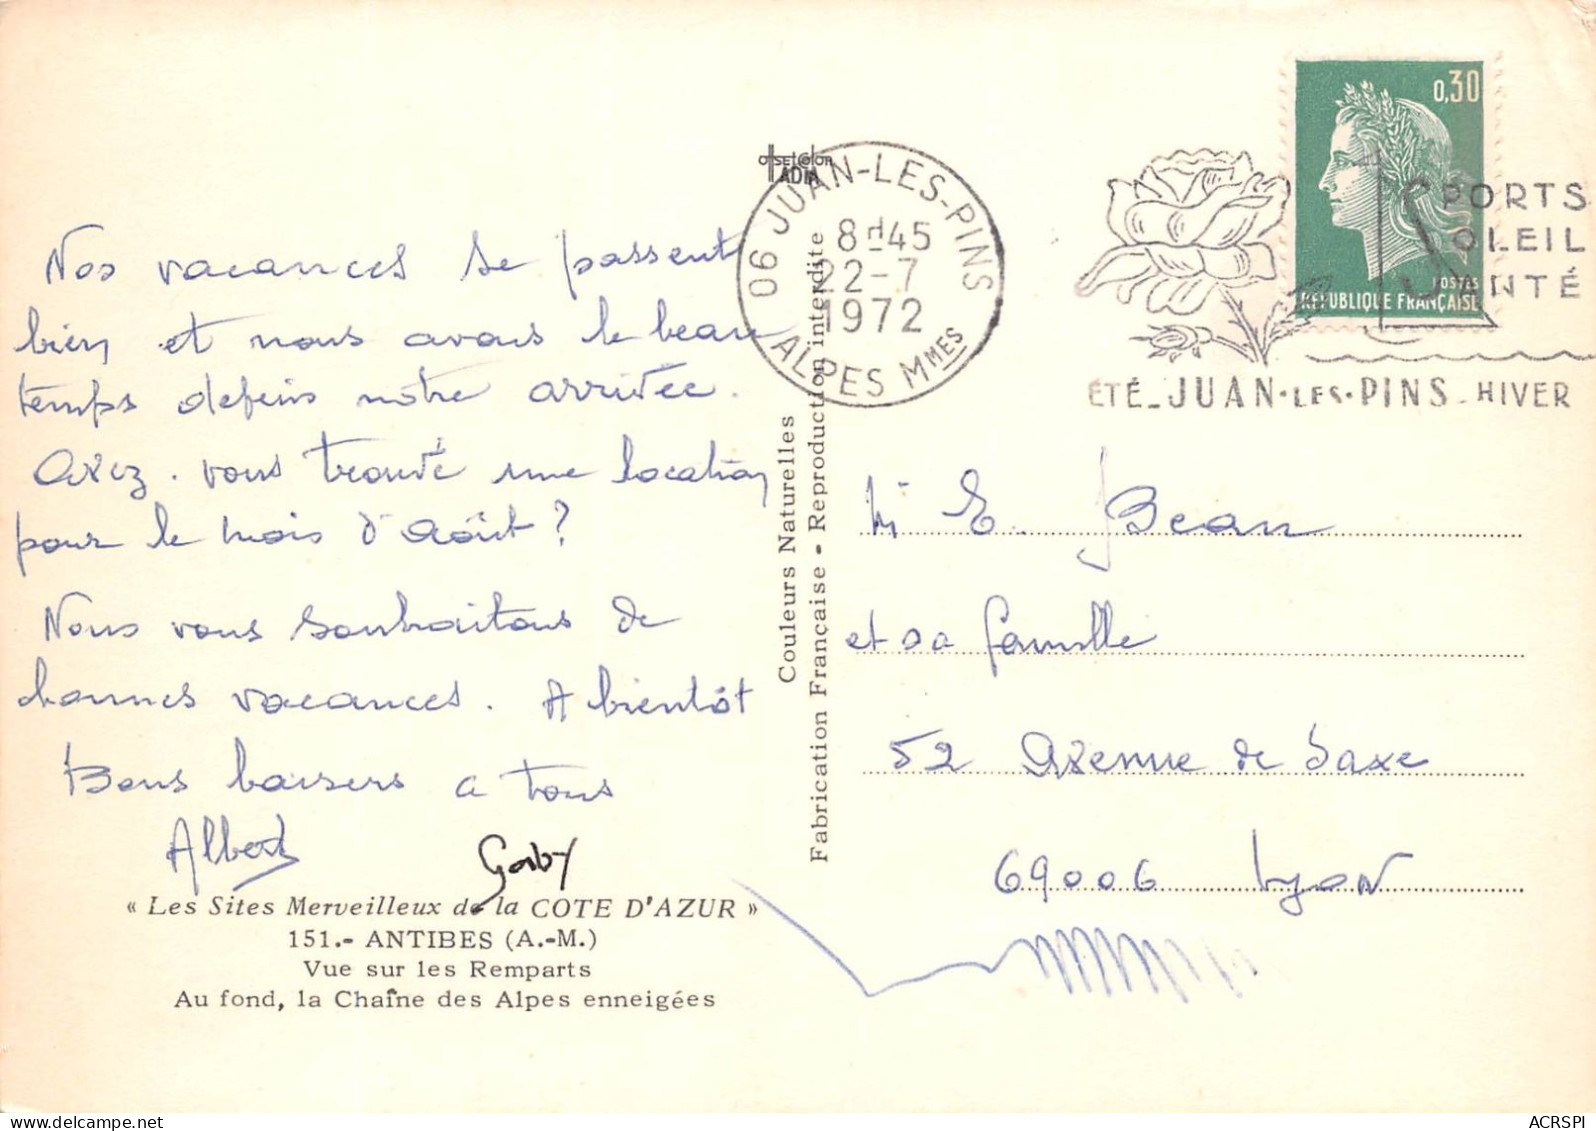 Nos vacances se passent
bien et nous avons le beau
temps depuis notre arrivée.
Avez-vous trouvé une location
pour le mois d'août ?
Nous vous souhaitons de
bonnes vacances. A bientôt
Bons baisers a tous
Albert Gaby
« Les Sites Merveilleux de la COTE D'AZUR »
151.- ANTIBES (A.-M.)
Vue sur les Remparts
Au fond, la Chaîne des Alpes enneigées
OFFSETCOLOR
ADIA
Couleurs Naturelles
Fabrication Française - Reproduction interdite
06 JUAN-LES-PINS
8H45
22-7
1972
ALPES MMES
0,30
POSTES
REPUBLIQUE FRANÇAISE
SPORTS
SOLEIL
SANTÉ
ÉTÉ_JUAN·LES·PINS_HIVER
M E. Bean
et sa famille
52 Avenue de Saxe
69006 Lyon
ACRSPI